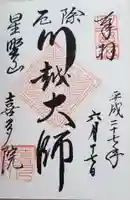 奉拝
平成二十七年
六月十七日
厄除
川越大師
星野山
喜多院